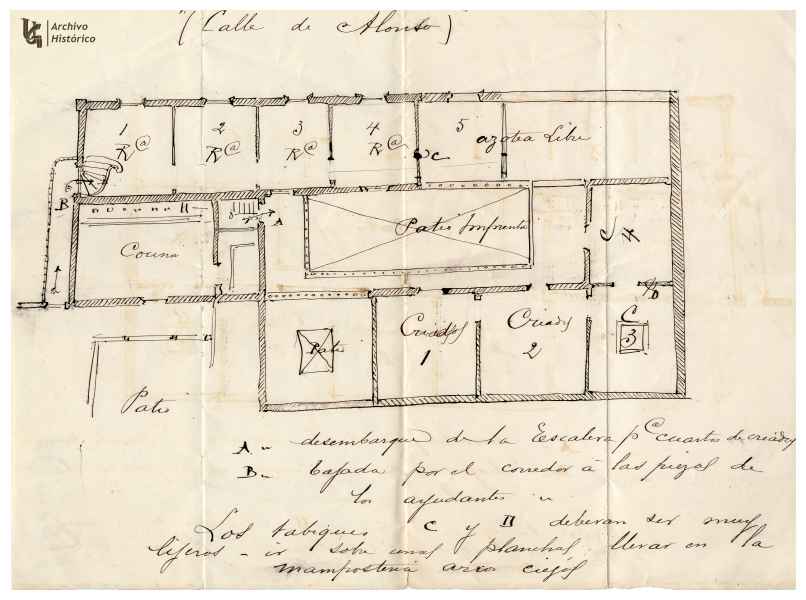 Archivo
Histórico
"(Calle de Alonso)
1 2 3 4 5
Rª Rª Rª Rª
azotea Libre
C
B
A
Cocina
Patio Imprenta
C
4
D
Patio
Criados
1
Criados
2
C
3
Patio
A " desembarque de la Escalera pª cuartos de criados
B " bajada por el corredor á las piezas de
los ayudantes "
Los tabiques C y D deberan ser muy
lijeros - ir sobre unas planchas llevar en la
mamposteria arcos ciegos